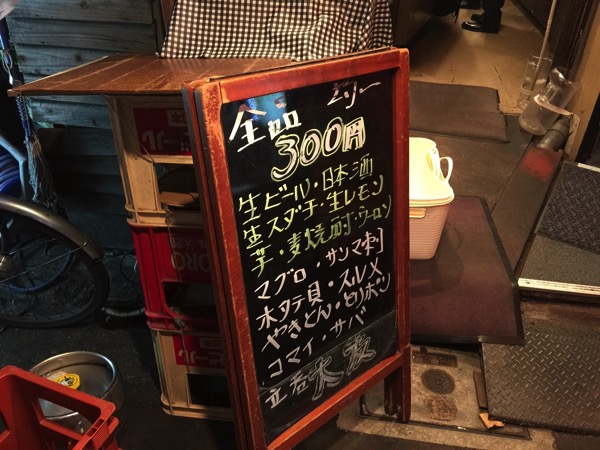 全品
300円
生ビール・日本酒
生スダチ・生レモン
芋・麦焼酎・ウーロン
マグロ・サンマ刺
ホタテ貝・スルメ
やきとん・とりポン
コマイ・サバ
立呑
ビール